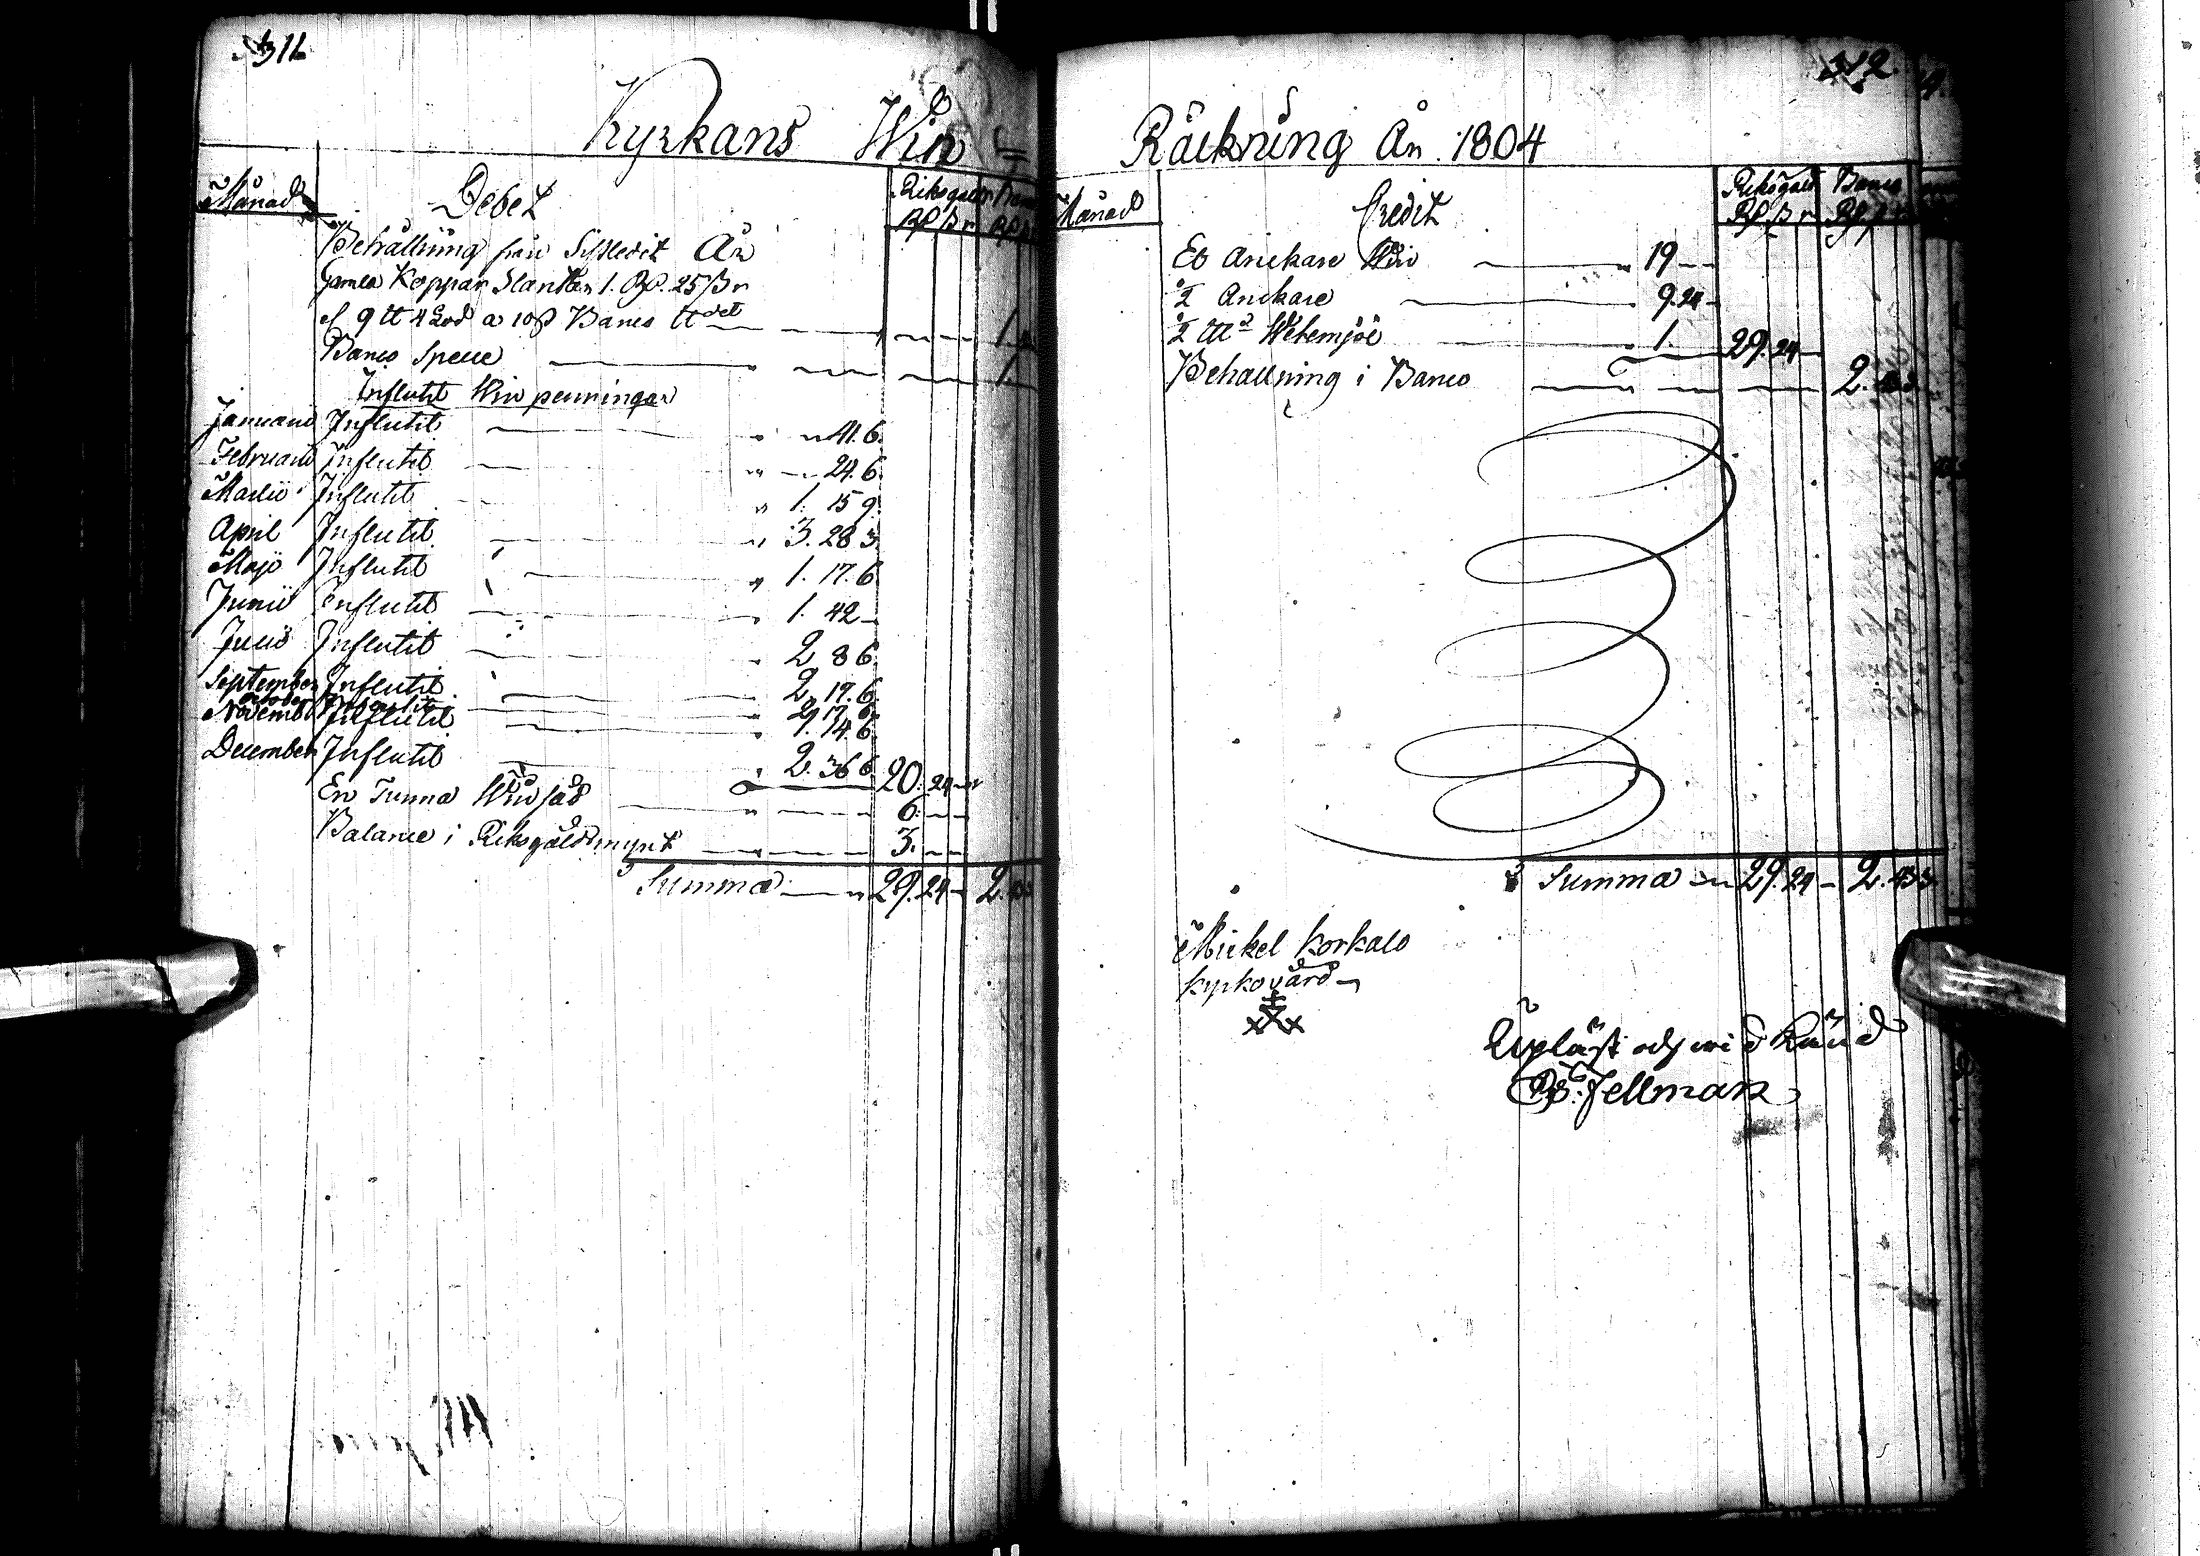 311
Kyrkans Win
Månad Debet Riksgäld Banco
Rd ß r Rd
Behållning från Sistledit År
Gamla Koppar Slantar 1. Rd. 25 ß r
9 ℔ 4 Lod a 10 ß Banco ℔det 1.
Banco Specie 1.
Influtit Win penningar
Januarii Influtit 41. 6.
Februarii Influtit 24. 6.
Martii Influtit 1. 15 9.
April Influtit 3. 28 3.
Maji Influtit 1. 17. 6
Junii Influtit 1. 42 –
Julii Influtit 2 8 6.
September Influtit 2. 19. 6.
October 2. 17. 6.
Novemb Influtit 1. 14. 6.
December Influtit 2. 36 6. 20. 24 –
En Tunna Win säd 6. – –
Balance i Riksgäldsmynt 3. – –
Summa 29. 24 – 2.
312
Räckning År 1804
Månad Credit Riksgäld Banco
Rd ß r Rd ß r
Et Anckare Win 19 – –
½ Anckare 9. 24 –
½ Wetemjöl 1. 29. 24 –
Behållning i Banco 2. 43 3.
Summa 29. 24 – 2. 43 3.
Mickel Korkalo
Kyrkovärd
Upläst och wid känd
Fellman